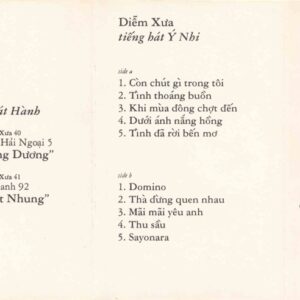 át Hành
Xưa 40
Hải Ngoại 5
ng Dương"
Xưa 41
anh 92
t Nhung"
Diễm Xưa
tiếng hát Ý Nhi
side a
1. Còn chút gì trong tôi
2. Tình thoáng buồn
3. Khi mùa đông chợt đến
4. Dưới ánh nắng hồng
5. Tình đã rời bến mơ
side b
1. Domino
2. Thà đừng quen nhau
3. Mãi mãi yêu anh
4. Thu sầu
5. Sayonara